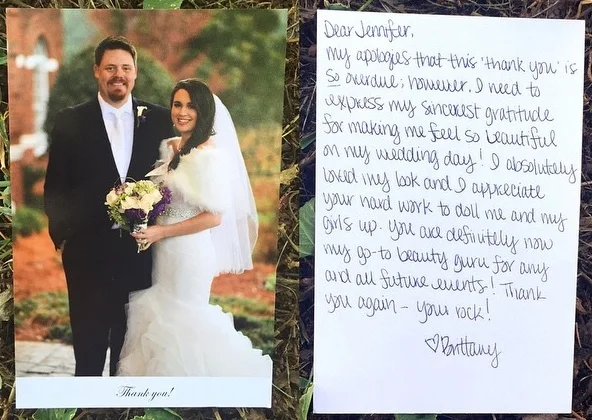 Thank you!
Dear Jennifer,
My apologies that this 'thank you' is
so overdue; however, I need to
express my sincerest gratitude
for making me feel so beautiful
on my wedding day! I absolutely
loved my look and I appreciate
your hard work to doll me and my
girls up. You are definitely now
my go-to beauty guru for any
and all future events! Thank
you again – you rock!
♡Brittany